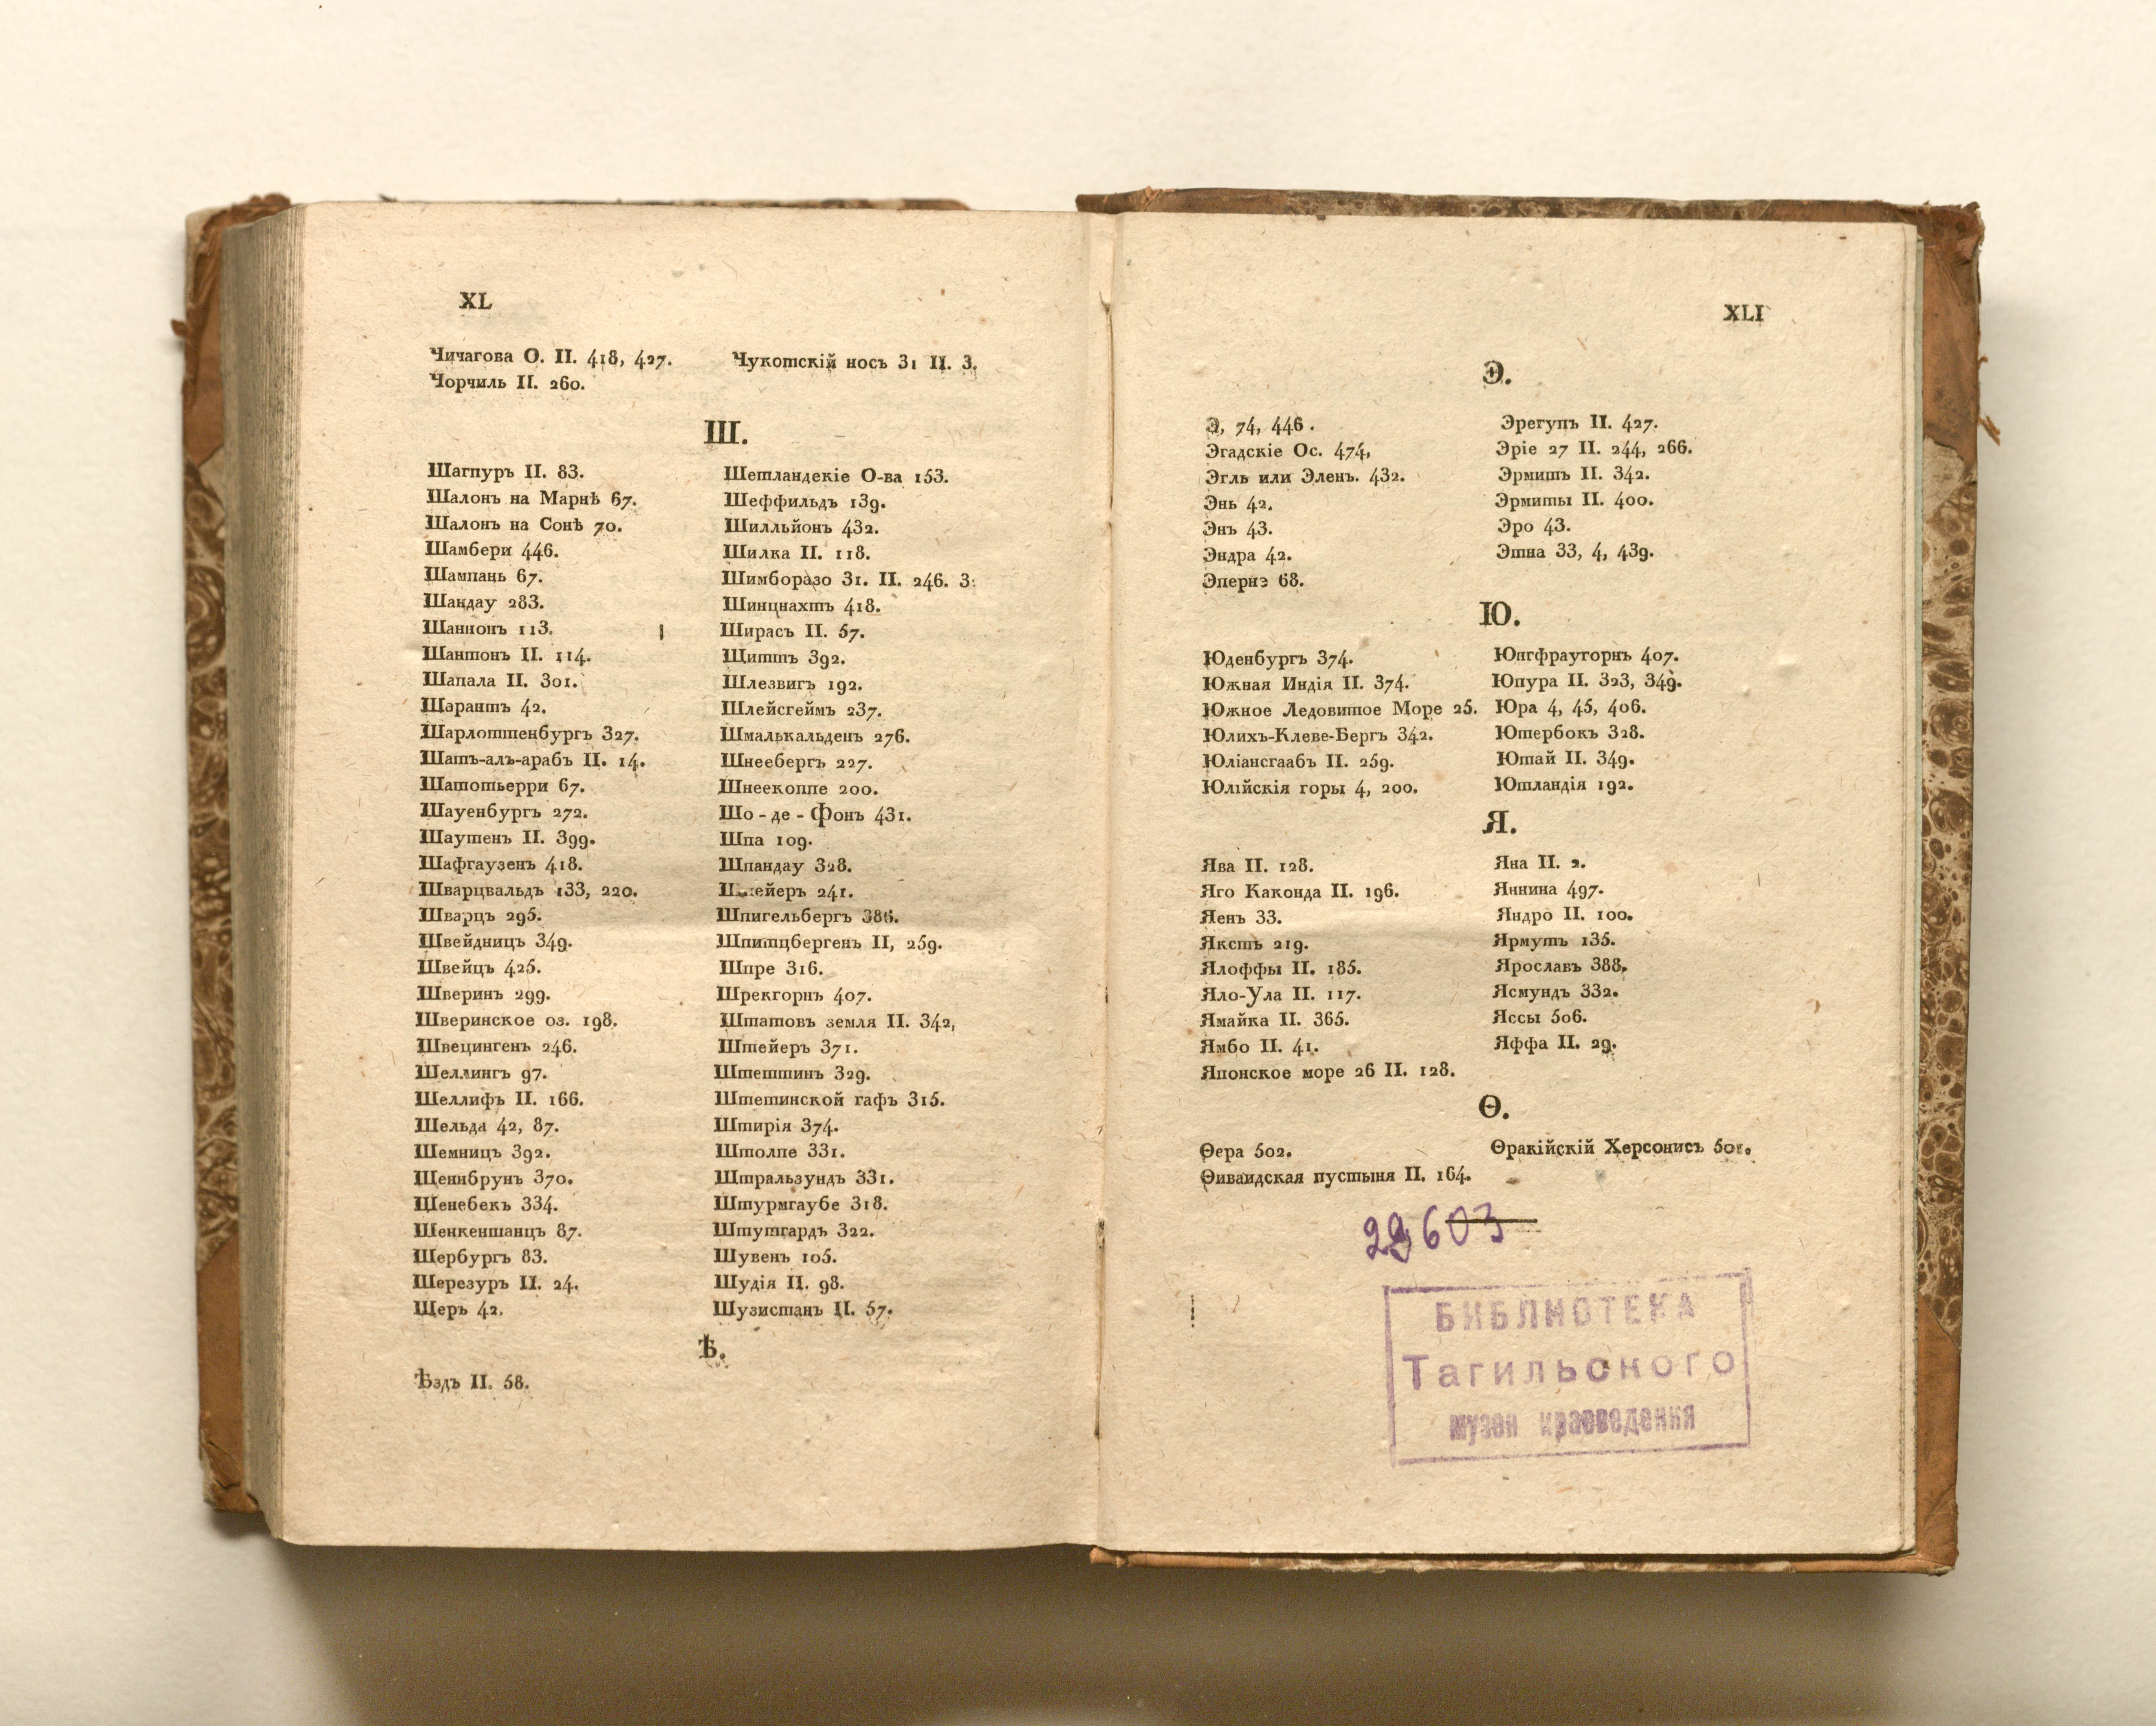 XL
Чичагова О. II. 418, 427.
Чорчиль II. 260.
Чукотскій носъ 31 II. 3.
Ш.
Шагпуръ II. 83.
Шалонъ на Марнѣ 67.
Шалонъ на Сонѣ 70.
Шамбери 446.
Шампань 67.
Шандау 283.
Шаннонъ 113.
Шантонъ II. 114.
Шапала II. 301.
Шарантъ 42.
Шарлоттенбургъ 327.
Шатъ-алъ-арабъ II. 14.
Шатотьерри 67.
Шауенбургъ 272.
Шаутенъ II. 399.
Шафгаузенъ 418.
Шварцвальдъ 133, 220.
Шварцъ 295.
Швейдницъ 349.
Швейцъ 425.
Шверинъ 299.
Шверинское оз. 198.
Швецингенъ 246.
Шеллингъ 97.
Шеллифъ II. 166.
Шельда 42, 87.
Шемницъ 392.
Шеннбрунъ 370.
Шенебекъ 334.
Шенкеншанцъ 87.
Шербургъ 83.
Шерезуръ II. 24.
Шеръ 42.
Шетландекіе О-ва 153.
Шеффильдъ 139.
Шилльйонъ 432.
Шилка II. 118.
Шимборазо 31. II. 246. 3
Шинцнахтъ 418.
Ширасъ II. 57.
Шиттъ 392.
Шлезвигъ 192.
Шлейсгеймъ 237.
Шмалькальденъ 276.
Шнеебергъ 227.
Шнеекоппе 200.
Шо - де - Фонъ 431.
Шпа 109.
Шпандау 328.
241.
Шпигельбергъ 386.
Шпитцбергенъ II, 259.
Шпре 316.
Шрекгорнъ 407.
Штатовъ земля II. 342,
Штейеръ 371.
Штеттинъ 329.
Штетинской гафъ 315.
Штирія 374.
Штолпе 331.
Штральзундъ 331.
Штурмгаубе 318.
Штутгардъ 322.
Шувенъ 105.
Шудія II. 98.
Шузистанъ II. 57.
Ѣ.
Ѣздъ II. 58.
XLI
Э.
Э, 74, 446.
Эгадскіе Ос. 474,
Эгль или Эленъ. 432.
Энь 42.
Энъ 43.
Эндра 42.
Эпернэ 68.
Эрегупъ II. 427.
Эріе 27 II. 244, 266.
Эрмитъ II. 342.
Эрмиты II. 400.
Эро 43.
Этна 33, 4, 439.
Ю.
Юденбургъ 374.
Южная Индія II. 374.
Южное Ледовитое Море 25.
Юлихъ-Клеве-Бергъ 342.
Юліансгаабъ II. 259.
Юлійскія горы 4, 200.
Юнгфраугорнъ 407.
Юпура II. 323, 349.
Юра 4, 45, 406.
Ютербокъ 328.
Ютай II. 349.
Ютландія 192.
Я.
Ява II. 128.
Яго Каконда II. 196.
Яенъ 33.
Якстъ 219.
Ялоффы II. 185.
Яло-Ула II. 117.
Ямайка II. 365.
Ямбо II. 41.
Японское море 26 II. 128.
Яна II. 2.
Яннина 497.
Яндро II. 100.
Ярмутъ 135.
Ярославъ 388.
Ясмундъ 332.
Яссы 506.
Яффа II. 29.
Ѳ.
Ѳера 502.
Ѳиваидская пустыня II. 164.
Ѳракійскій Херсонисъ
29603
БИБЛИОТЕКА
Тагильского
музея краеведения